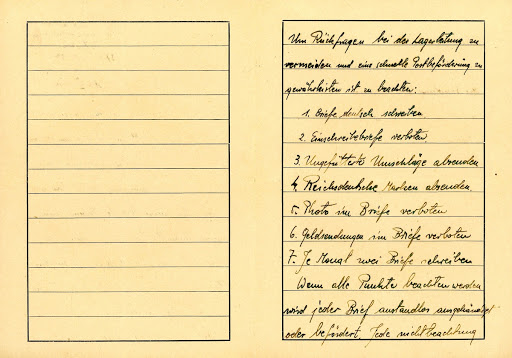 Um Rückfragen bei der Lagerleitung zu
vermeiden und eine schnelle Postbeförderung zu
gewährleisten ist zu beachten:
1. Briefe deutsch schreiben
2. Einschreibebriefe verboten.
3. Ungefütterte Umschläge absenden
4. Reichsdeutsche Marken absenden.
5. Photo im Briefe verboten
6. Geldsendungen im Briefe verboten
7. Je Monat zwei Briefe schreiben
Wenn alle Punkte beachten werden
wird jeder Brief anstandlos ausgehändigt
oder befördert. Jede nichtbeachtung